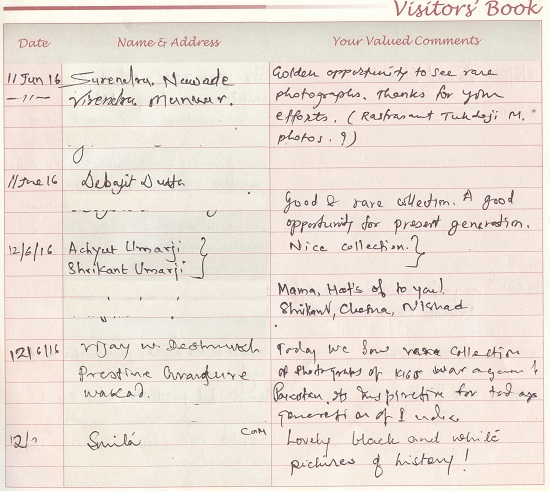 Visitors' Book
Date Name & Address Your Valued Comments
11 Jun 16 Surendra Nawade Golden opportunity to see rare
—11— Virendra Munwar. photographs. Thanks for your
efforts. (Rastrasant Tukdoji M.
photos. ?)
11 June 16 Debajit Dutta
Good & rare collection. A good
opportunity for present generation.
12/6/16 Achyut Umarji Nice collection.
Shrikant Umarji
Mama, Hat's of to you!
Shrikant, Chetna, Nishad.
12/6/16 Vijay W. Deshmukh Today we saw rare collection
Prestine of photographs of 1965 war against
wakad. Pakistan. Its Inspirative for
generation of India
12/ Smila com Lovely black and white
pictures of history!